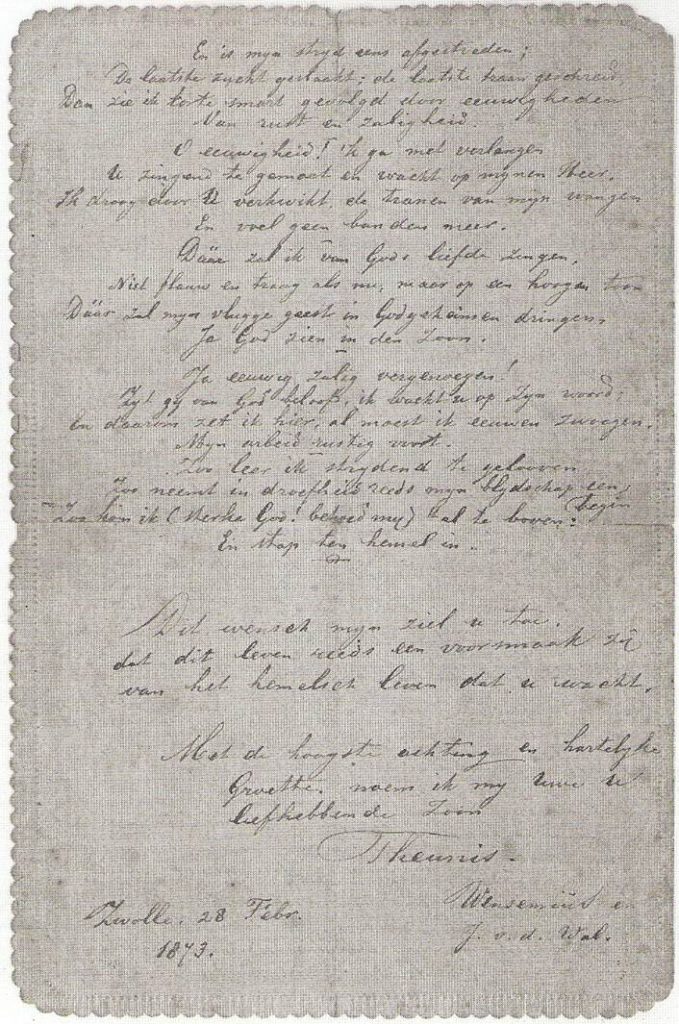 En is myn stryd eens afgestreden;
De laatste zucht geslaakt; de laatste traan geschreid,
Dan zie ik korte smart gevolgd door eeuwigheden
Van rust en zaligheid.
O eeuwigheid! 'k ga met verlangen
U zingend te gemoet en wacht op mynen Heer.
Ik droog door U verkwikt, de tranen van myn wangen
En voel geen banden meer.
Dáár zal ik van Gods liefde zingen,
Niet flauw en traag als nu, maar op een hoogen toon
Dáár zal myn vlugge geest in Godgeheimen dringen,
Ja God zien in den Zoon.
Ja eeuwig zalig vergenoegen!
Zyt gy van God beloofd, ik wacht u op Zyn woord;
En daarom zet ik hier, al moest ik eeuwen zwoegen,
Myn arbeid rustig voort.
Zoo leer ik strydend te gelooven
Zoo neemt in droefheid reeds myn blydschap een begin
Zoo kom ik (Sterke God! behoed my) al te boven:
En stap ten hemel in.
Dit wensch myn ziel u toe,
dat dit leven reeds een voorsmaak zij
van het hemelsch leven dat u wacht.
Met de hoogste achting en hartelyke
Groette. noem ik my Uwe u
liefhebbende Zoon
Theunis.
Zwolle. 28 Febr.
1873.
en
J. v. d. Wal.